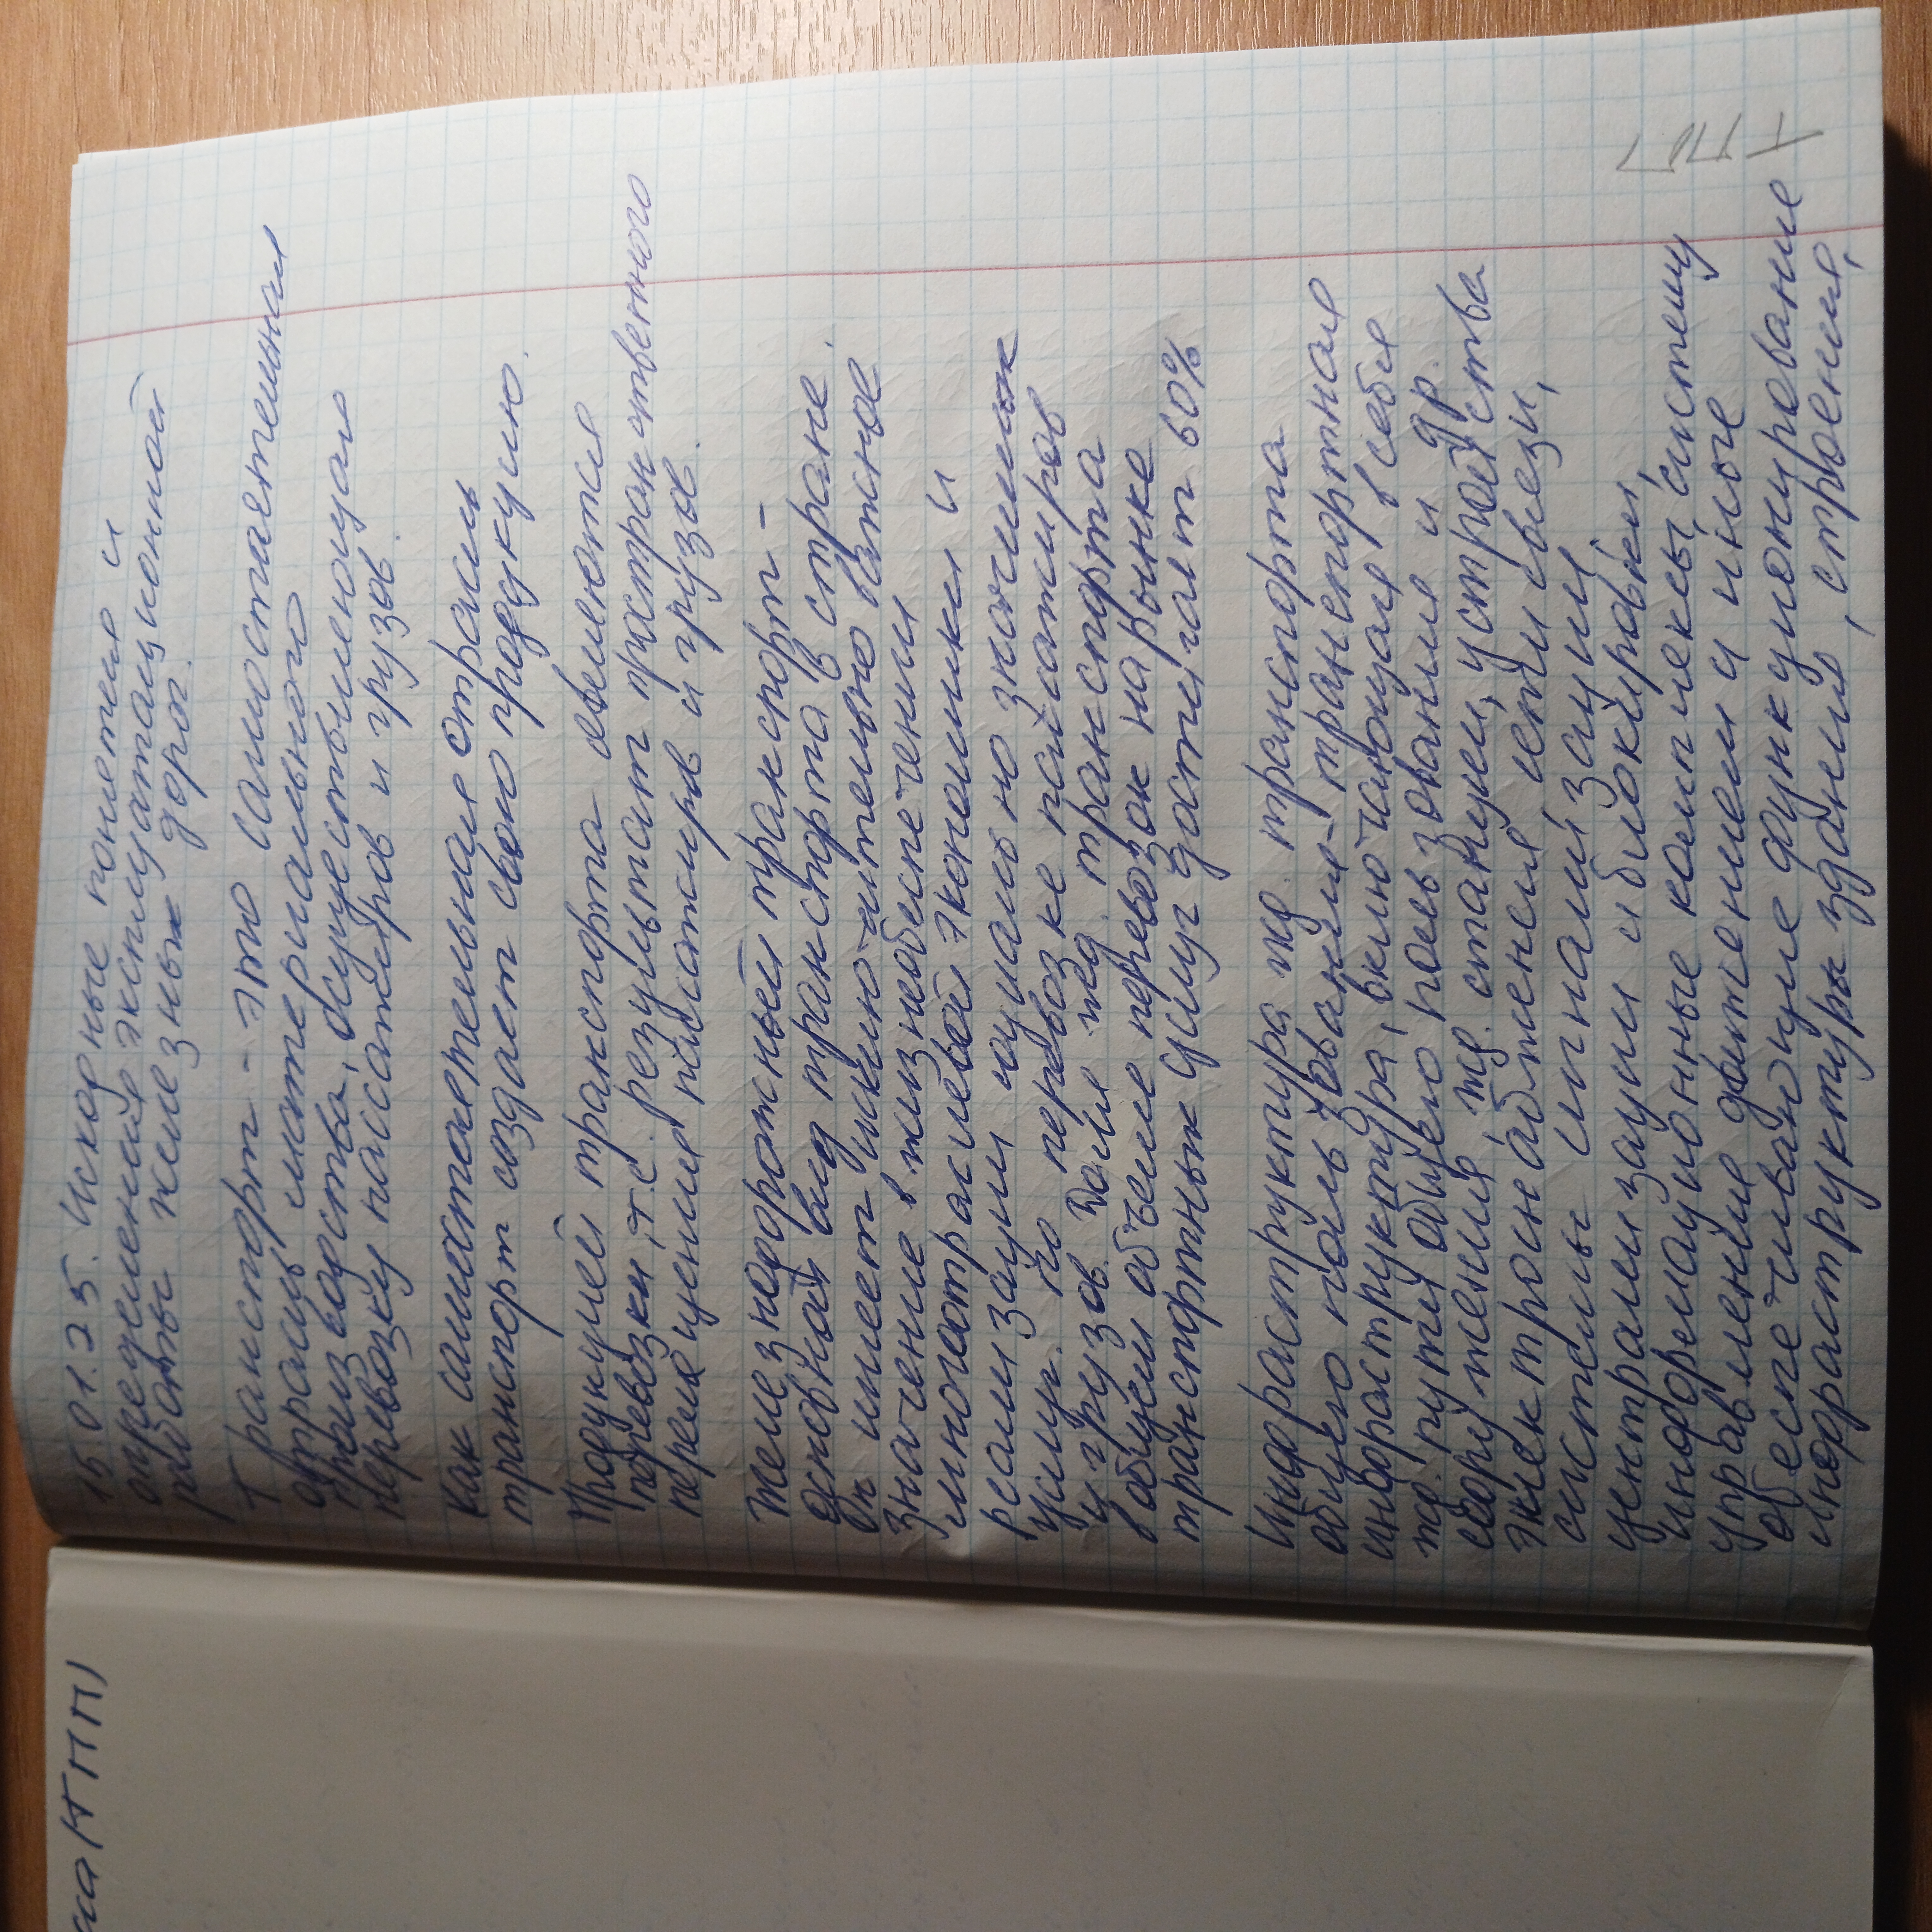 15.01.25. Искорные понятия и
определения эксплуатационной
работы железных дорог.
Транспорт - это самостоятельная
отрасль материального
производства, осуществляющая
перевозку пассажиров и грузов.
Как самостоятельная отрасль
транспорт создает свою продукцию.
Продукцией транспорта являются
перевозки, т.е. результат пространственного
перемещения пассажиров и грузов.
Железнодорожный транспорт -
основной вид транспорта в стране.
Он имеет исключительно важное
значение в жизнеобеспечении
многоотраслевой экономики и
реализации социально значимых
услуг по перевозке пассажиров
и грузов. Доля жд. транспорта
в общем объеме перевозок на рынке
транспортных услуг достигает 60%
Инфраструктура жд. транспорта
общего пользования - транспортная
инфраструктура, включающая в себя
жд. пути общего пользования и др.
сооружения, жд. станции, устройства
электроснабжения, сети связи,
системы сигнализации,
централизации и блокировки,
информационные комплексы, систему
управления движением и иные
обеспечивающие функционирование
инфраструктуры здания, строения,
ка КТПП)